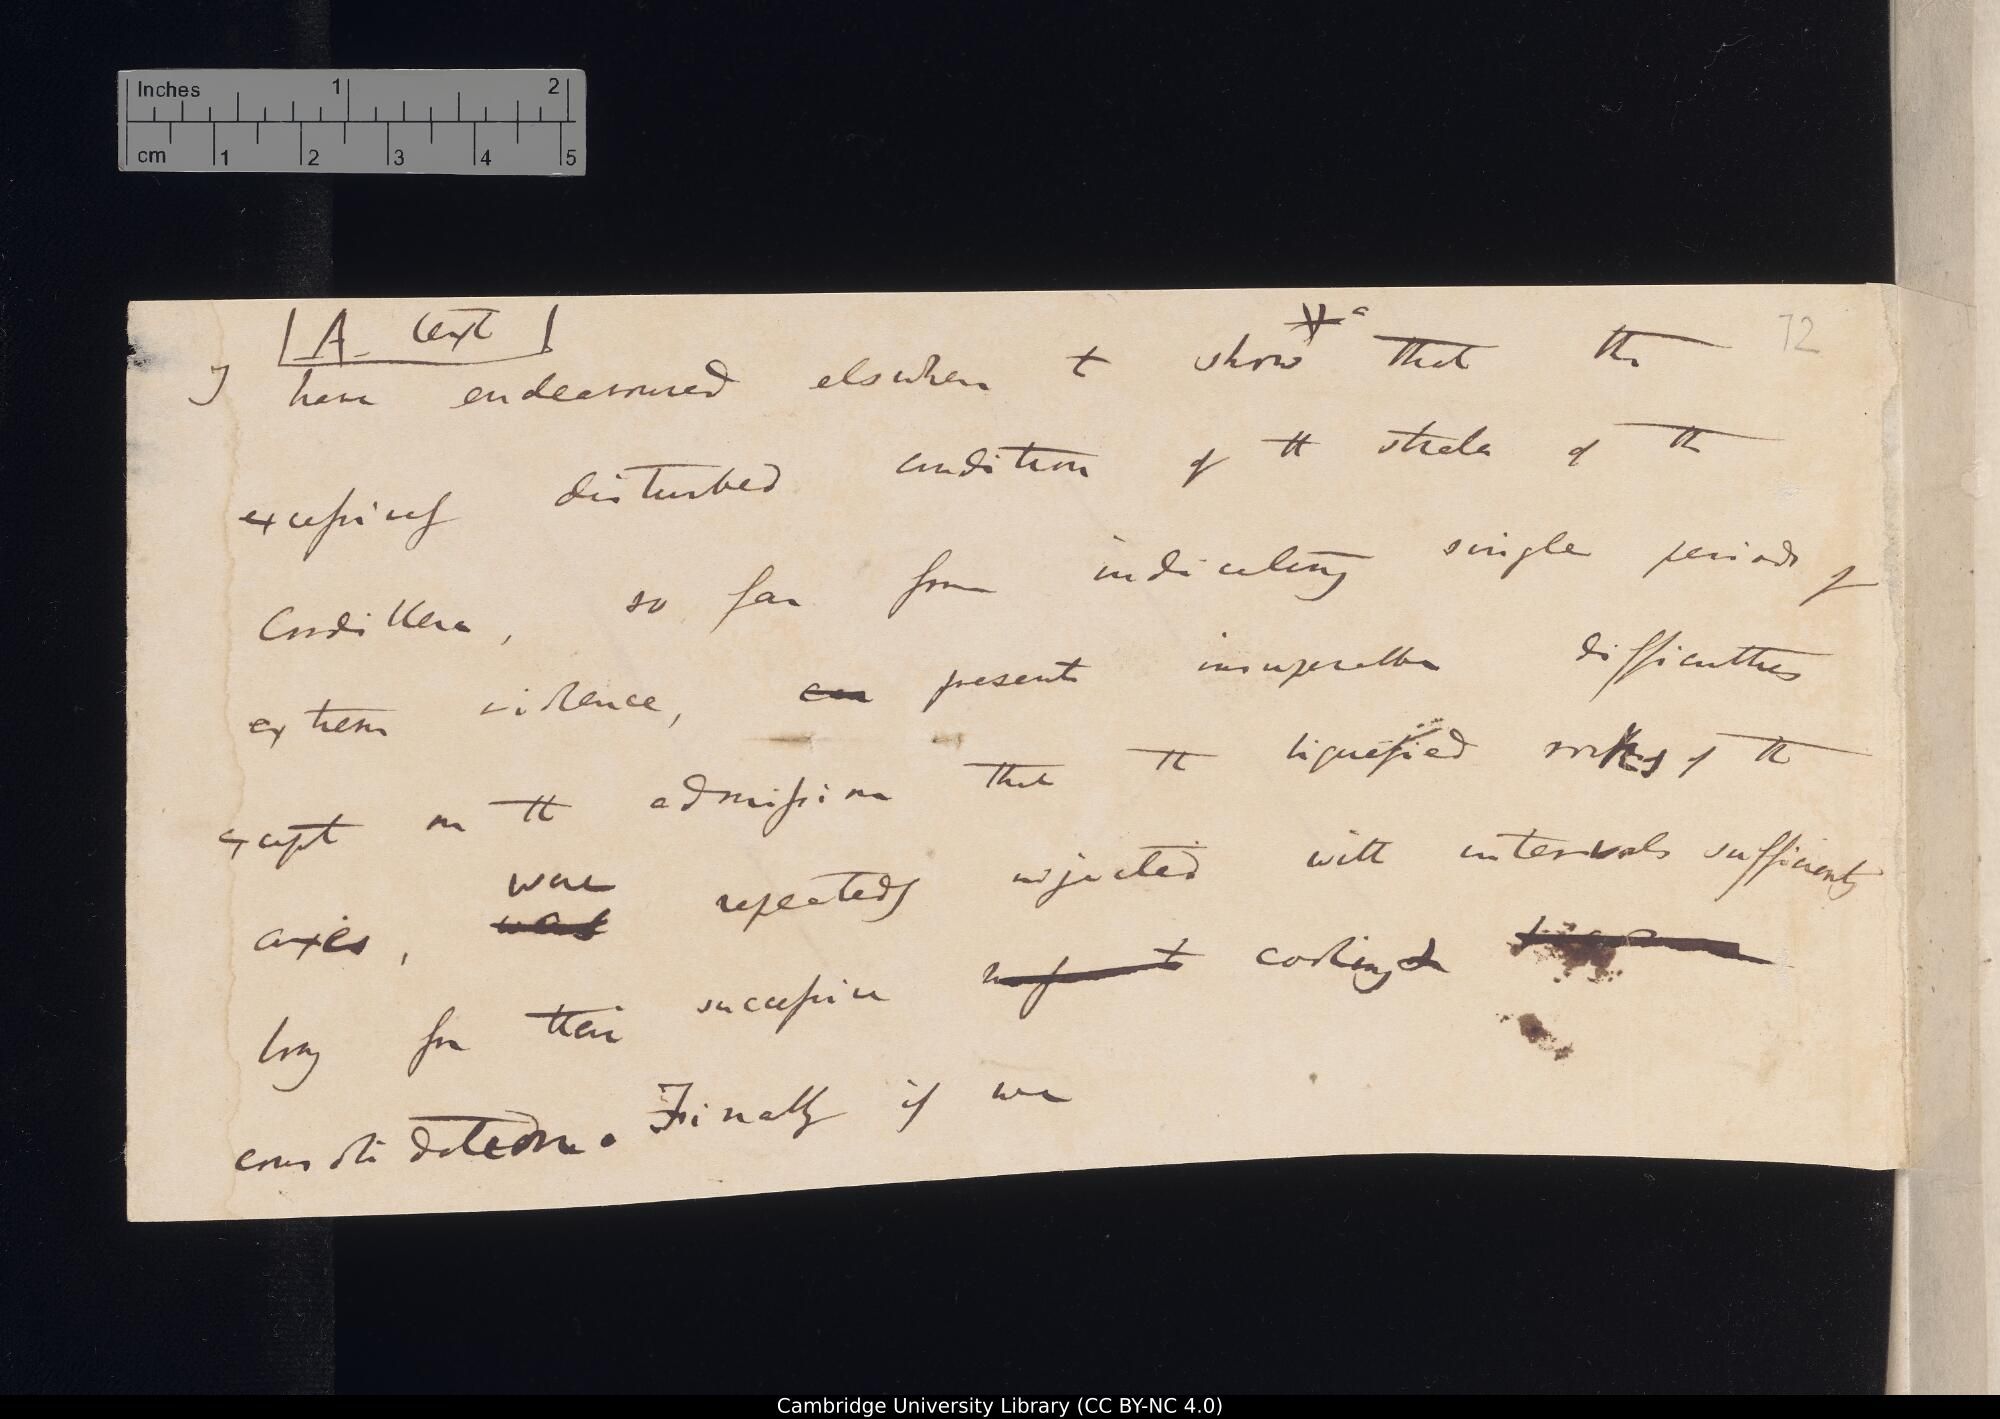 Inches 1 2
cm 1 2 3 4 5
A text
72
I have endeavoured elswhere to show that the
excessively disturbed condition of the strata of the
Cordillera, so far from indicating single periods of
extreme violence, presents insuperable difficulties
except on the admission that the liquefied rocks of the
were
axes, was repeatedly injected with intervals sufficiently
long for their successive cooling &
consolidation. Finally if we
Cambridge University Library (CC BY-NC 4.0)